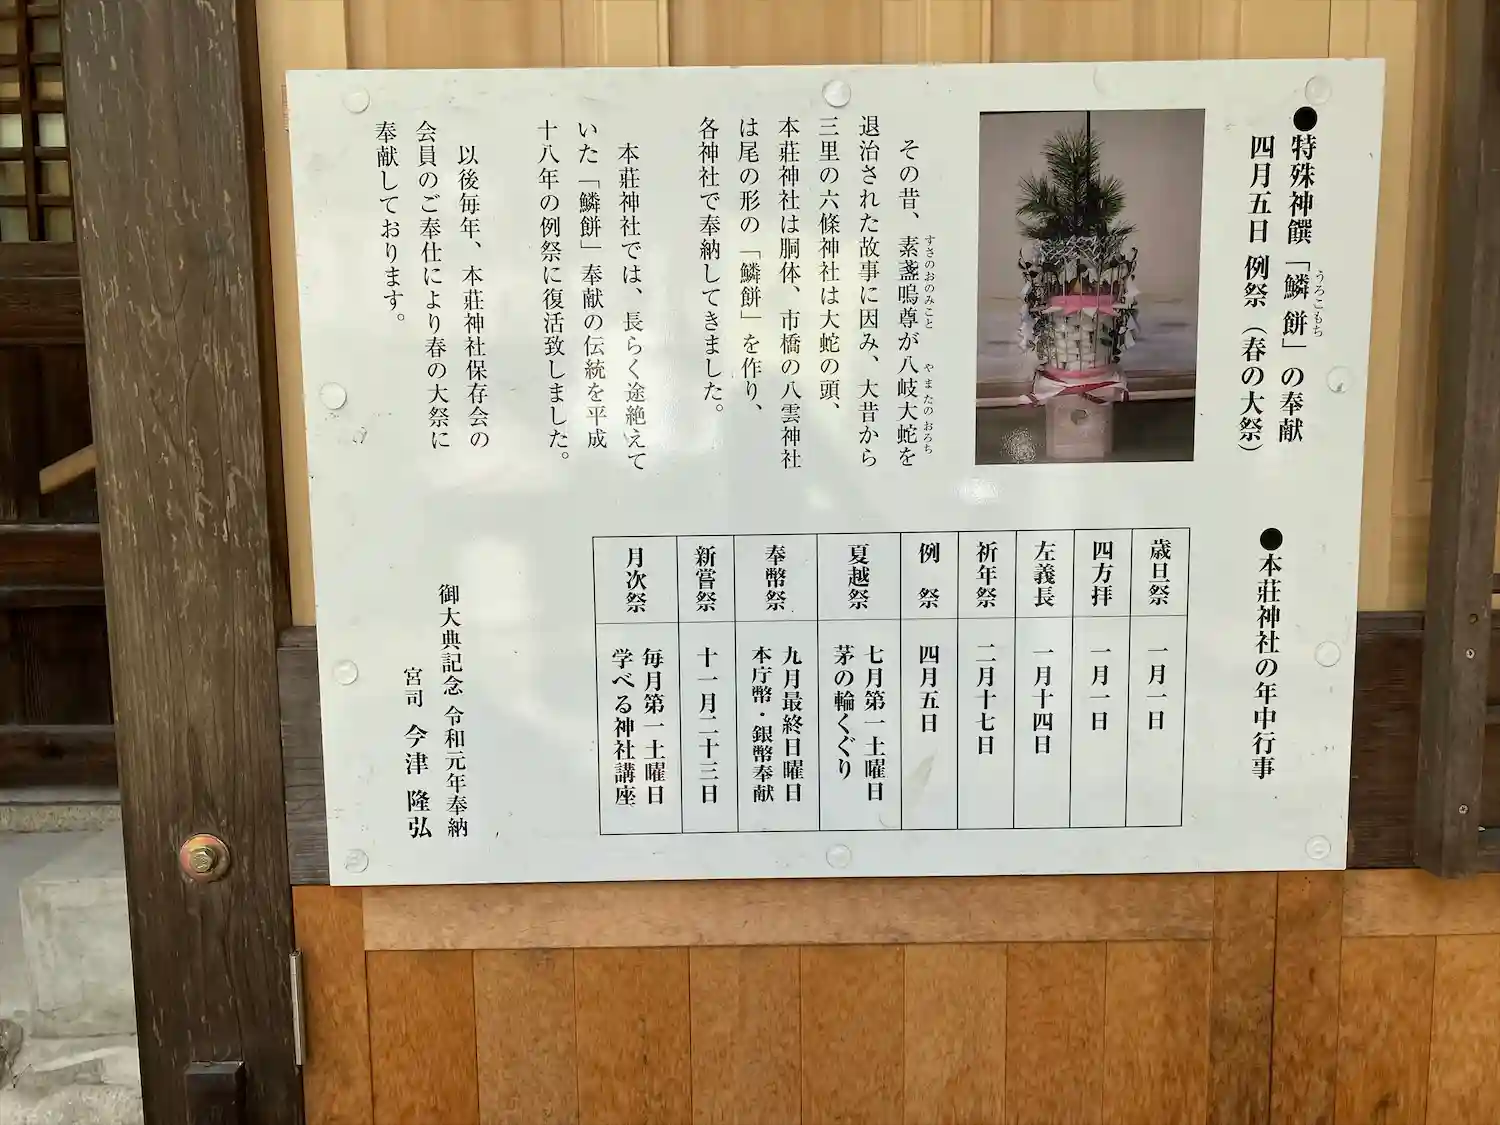 ●特殊神饌「鱗餅」の奉献
うろこもち
四月五日 例祭（春の大祭）
その昔、素盞嗚尊が八岐大蛇を
すさのおのみこと
やまたのおろち
退治された故事に因み、大昔から
三里の六條神社は大蛇の頭、
本莊神社は胴体、市橋の八雲神社
は尾の形の「鱗餅」を作り、
各神社で奉納してきました。
本莊神社では、長らく途絶えて
いた「鱗餅」奉献の伝統を平成
十八年の例祭に復活致しました。
以後毎年、本莊神社保存会の
会員のご奉仕により春の大祭に
奉献しております。
●本莊神社の年中行事
歳旦祭 一月一日
四方拝 一月一日
左義長 一月十四日
祈年祭 二月十七日
例 祭 四月五日
夏越祭 七月第一土曜日
茅の輪くぐり
奉幣祭 九月最終日曜日
本庁幣・銀幣奉献
新嘗祭 十一月二十三日
月次祭 毎月第一土曜日
学べる神社講座
御大典記念 令和元年奉納
宮司 今津 隆弘